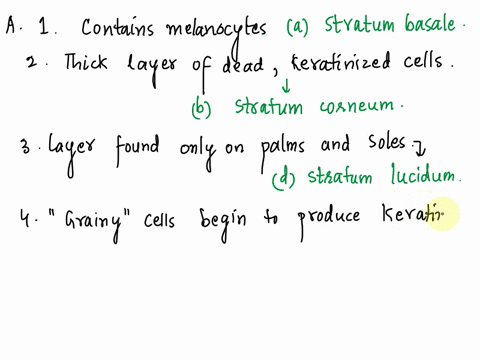 A. 1. Contains melanocytes (a) Stratum basale.
2. Thick layer of dead, keratinized cells.
↓
(b) Stratum corneum.
3. Layer found only on palms and soles. ↴
(d) Stratum lucidum.
4. "Grainy" cells begin to produce Keratin